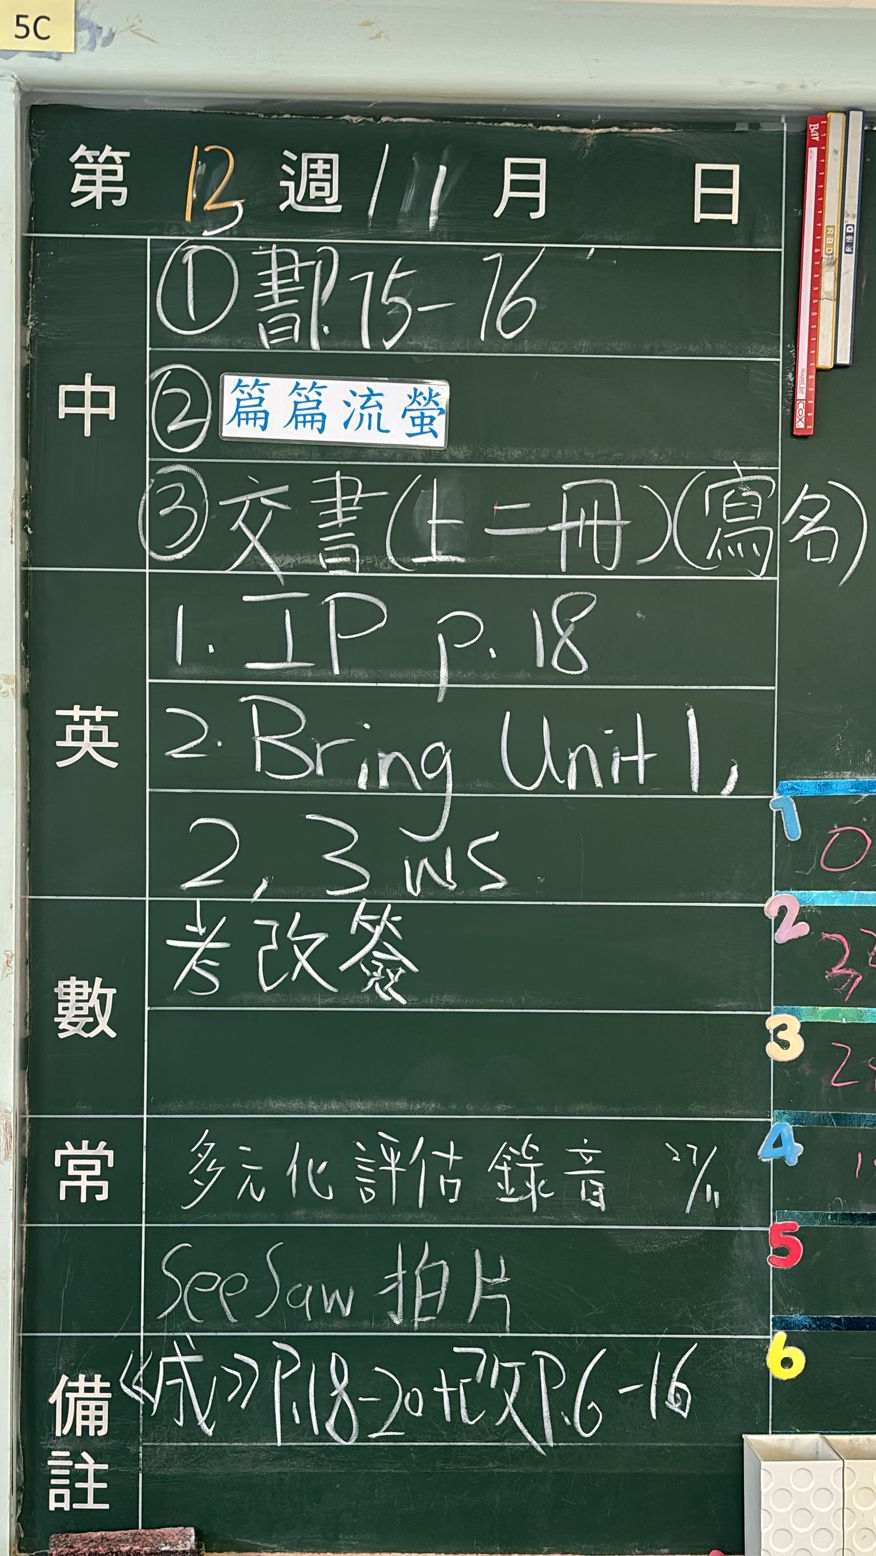 5C
第 13 週 11 月 日
中
① 書P.75-76
② 篇篇流螢
③ 交書(上二冊)(寫名)
英
1. IP p.18
2. Bring Unit 1,
2, 3 WS
數
考改簽
常
多元化評估錄音 27/11
SeeSaw 拍片
備註
《成》P.18-20+改P.6-16
1
2
3
4
5
6